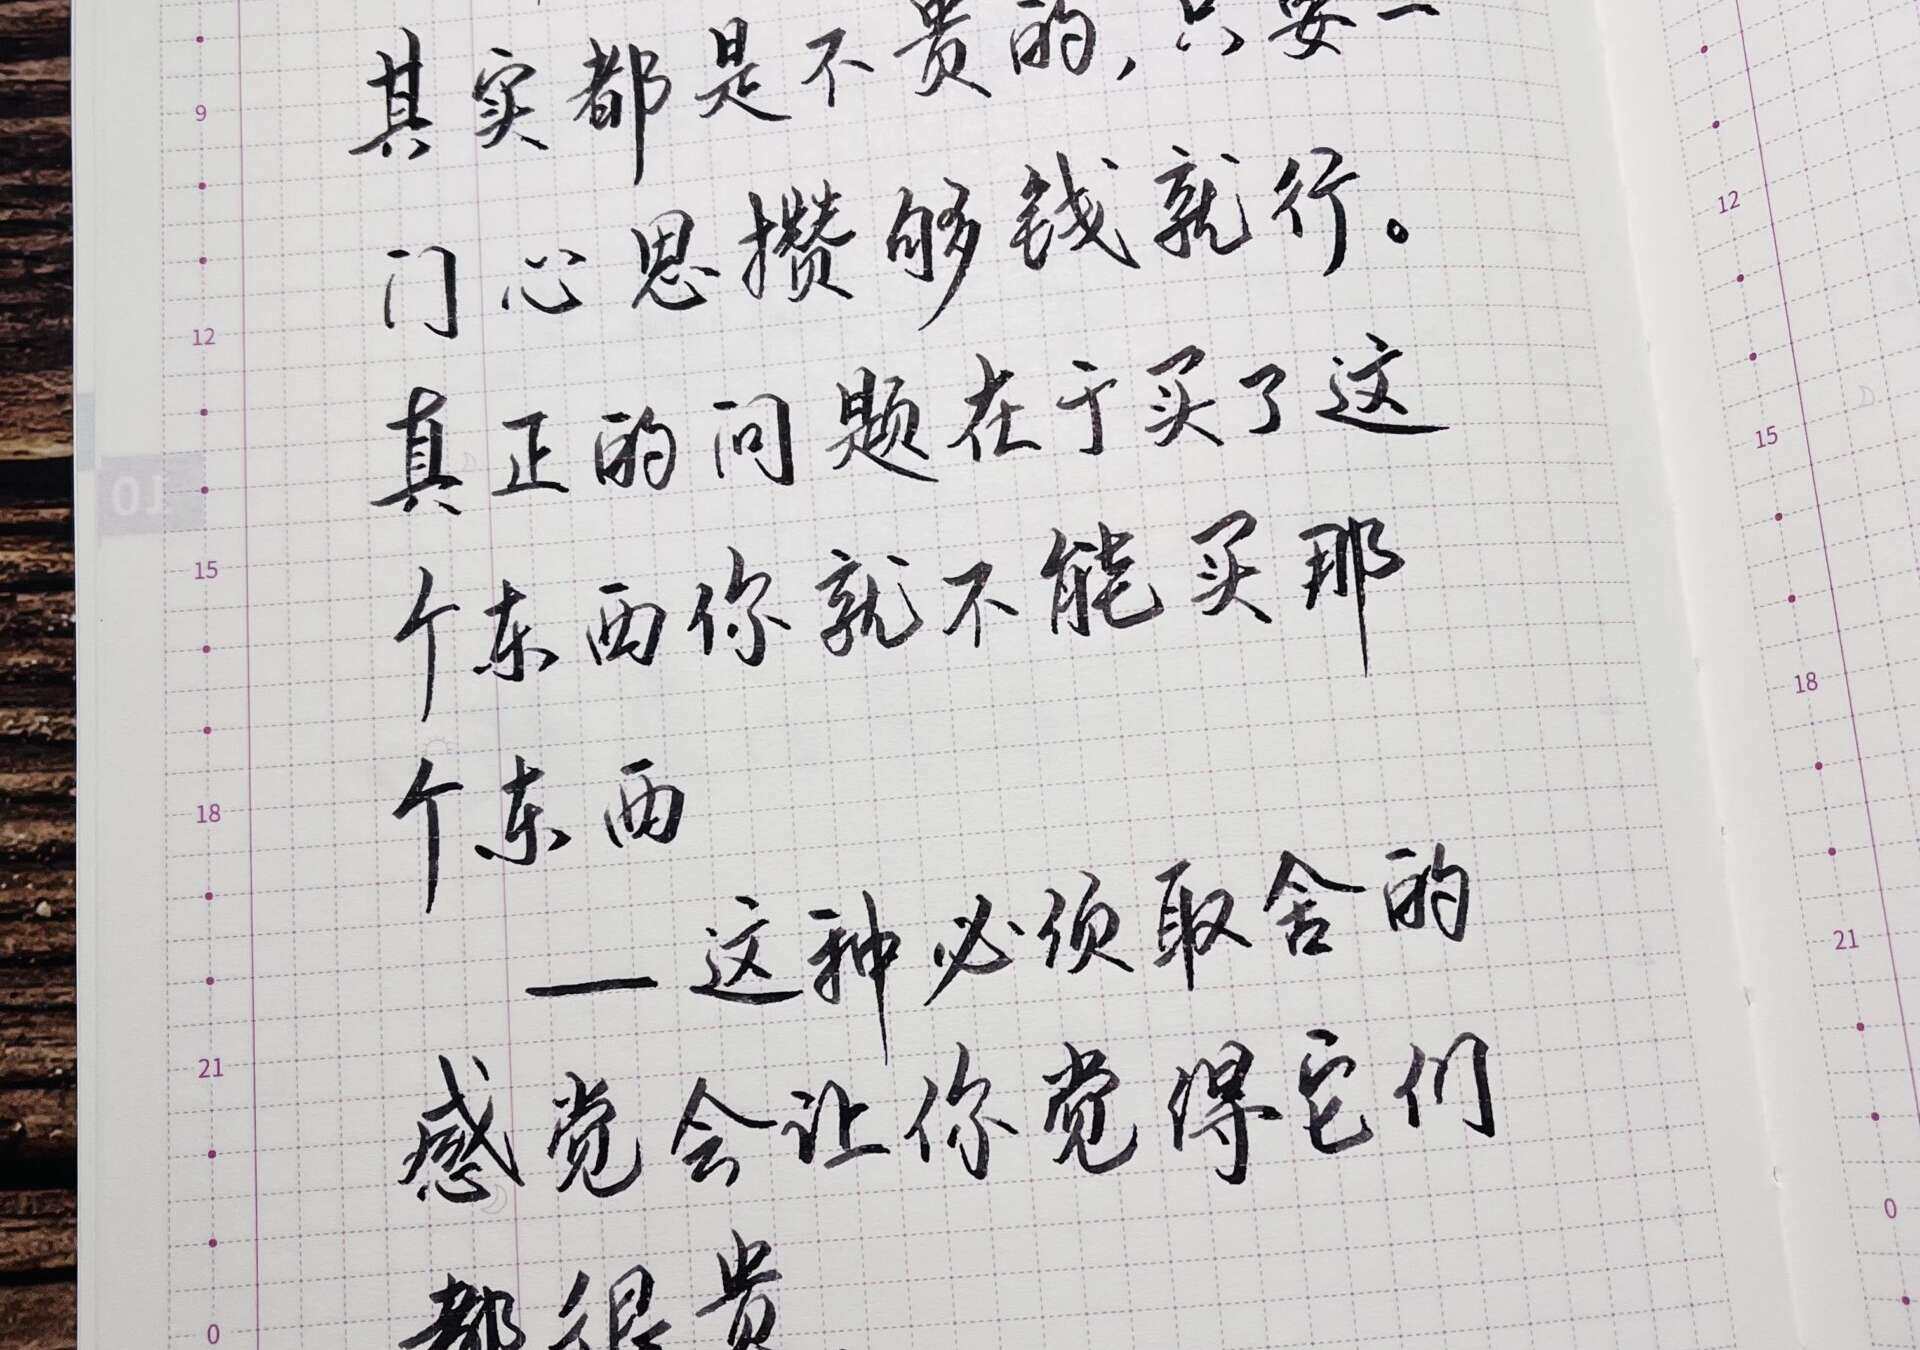 其实都是不贵的，只要一
门心思攒够钱就行。
真正的问题在于买了这
个东西你就不能买那
个东西
—这种必须取舍的
感觉会让你觉得它们
都很贵
9
12
15
18
21
0
10
12
15
18
21
0